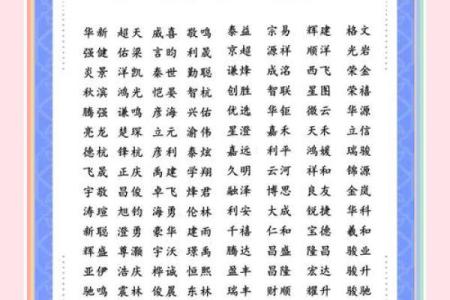 华新 超天 威喜 敬鸣 泰益 宗易 辉建 格文
强健 佑梁 言昀 利晟 京超 源祥 顺洋 光岩
炎景 洋凯 泰世 勤聪 谦烽 成洺 西飞 荣金
秋滨 鸿光 恺晏 智杭 创胜 智联 星图 荣禧
腾强 谦鸣 彦海 兴佑 优选 华钜 微云 华源
亮龙 楚琛 立元 渝伟 星澄 嘉禾 天禾 立信
德杭 锋杭 彦利 泰炫 嘉远 利平 鸿媛 瑞骏
晟飞 正庆 禹建 学翔 久明 云河 祥和 锦源
宇敬 昌俊 卓飞 烽君 融泽 博思 良友 金岚
涛瑄 旭钧 海勇 伦林 利安 大成 锐捷 华科
新聪 澄勇 豪华 建雨 千禧 仁和 宝德 羲和
辉盛 尊灏 宇沃 璟禹 腾达 昌盛 隆昌 骏业
亚伊 浩庆 桦诚 恒熙 盈丰 昌隆 宏达 骏升
驰鸣 震林 俊晨 东林 瑞丰 财顺 耀升 骏驰